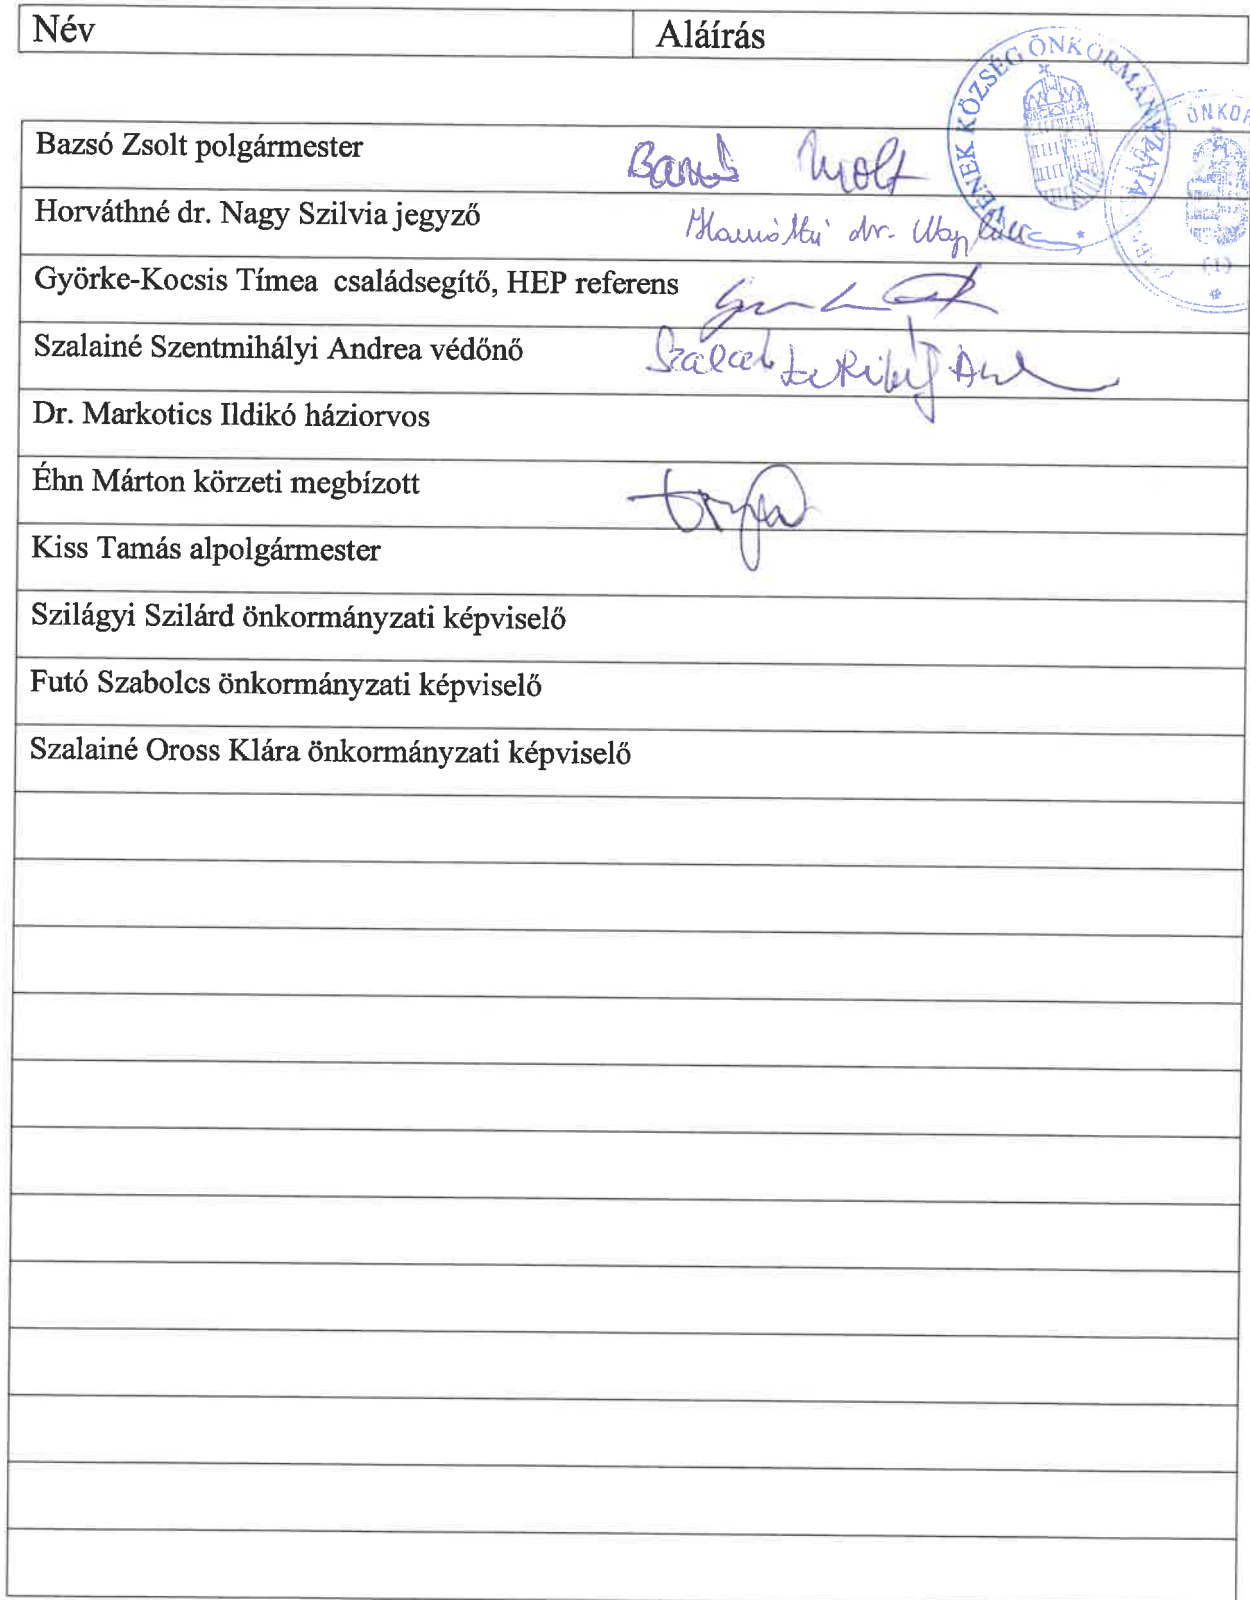 Név Aláírás
VÉNEK KÖZSÉG ÖNKORMÁNYZATA
ÖNKOR
(1)
Bazsó Zsolt polgármester Bazsó Zsolt
Horváthné dr. Nagy Szilvia jegyző Horváthné dr. Nagy
Györke-Kocsis Tímea családsegítő, HEP referens
Szalainé Szentmihályi Andrea védőnő
Dr. Markotics Ildikó háziorvos
Éhn Márton körzeti megbízott
Kiss Tamás alpolgármester
Szilágyi Szilárd önkormányzati képviselő
Futó Szabolcs önkormányzati képviselő
Szalainé Oross Klára önkormányzati képviselő